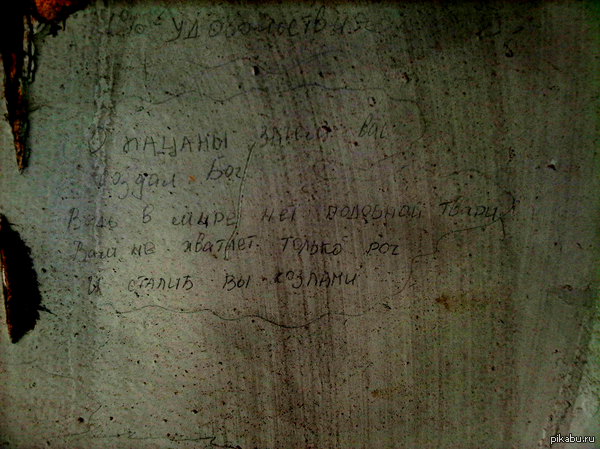 удовольствия
О пацаны зачем вас
создал Бог
Ведь в мире нет подобной твари
Вам не хватает только рог
И сталиб вы козлами
pikabu.ru